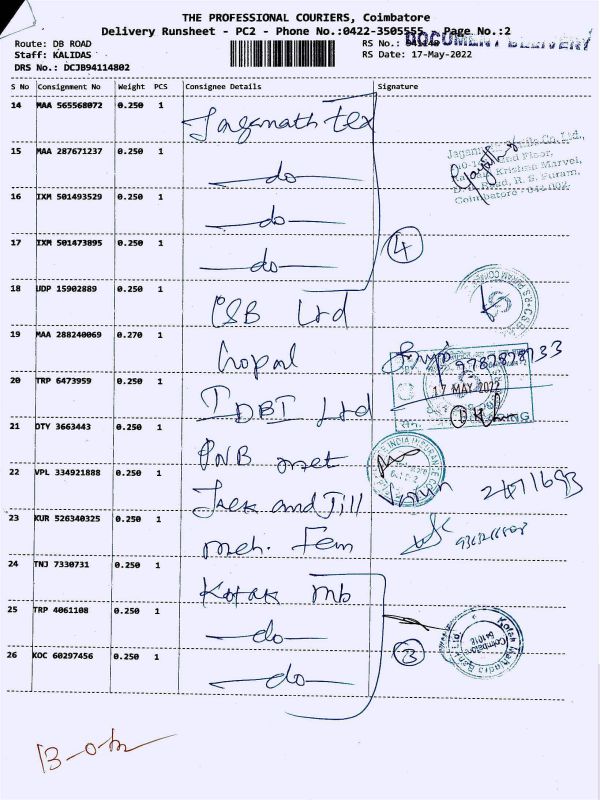 THE PROFESSIONAL COURIERS, Coimbatore
Delivery Runsheet - PC2 - Phone No.:0422-3505555 Page No.:2
DOCUMENT DELIVERY
Route: DB ROAD
RS No.:
Staff: KALIDAS
RS Date: 17-May-2022
DRS No.: DCJB94114802
S No Consignment No Weight PCS Consignee Details Signature
14 MAA 565568072 0.250 1 Jaganath tex
15 MAA 287671237 0.250 1 do
16 IXM 501493529 0.250 1 do
17 IXM 501473895 0.250 1 do
4
18 UDP 15902889 0.250 1 CSB Ltd
19 MAA 288240069 0.270 1 Gopal
20 TRP 6473959 0.250 1 IDBI Ltd
17 MAY 2022
21 OTY 3663443 0.250 1 PNB met
22 VPL 334921888 0.250 1 Jack and Jill
23 KUR 526340325 0.250 1 Fem
24 TNJ 7330731 0.250 1 Kotak mb
25 TRP 4061108 0.250 1 do
26 KOC 60297456 0.250 1 do
3